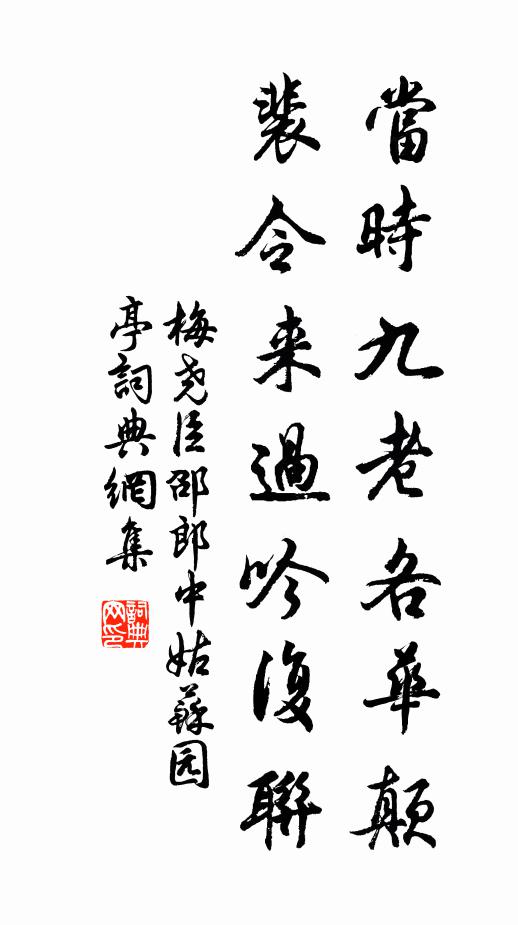 當時九老各華顛
裴令来過吟復聯
梅尧臣邵郎中姑蘇园
亭詞典網集
詞典网印